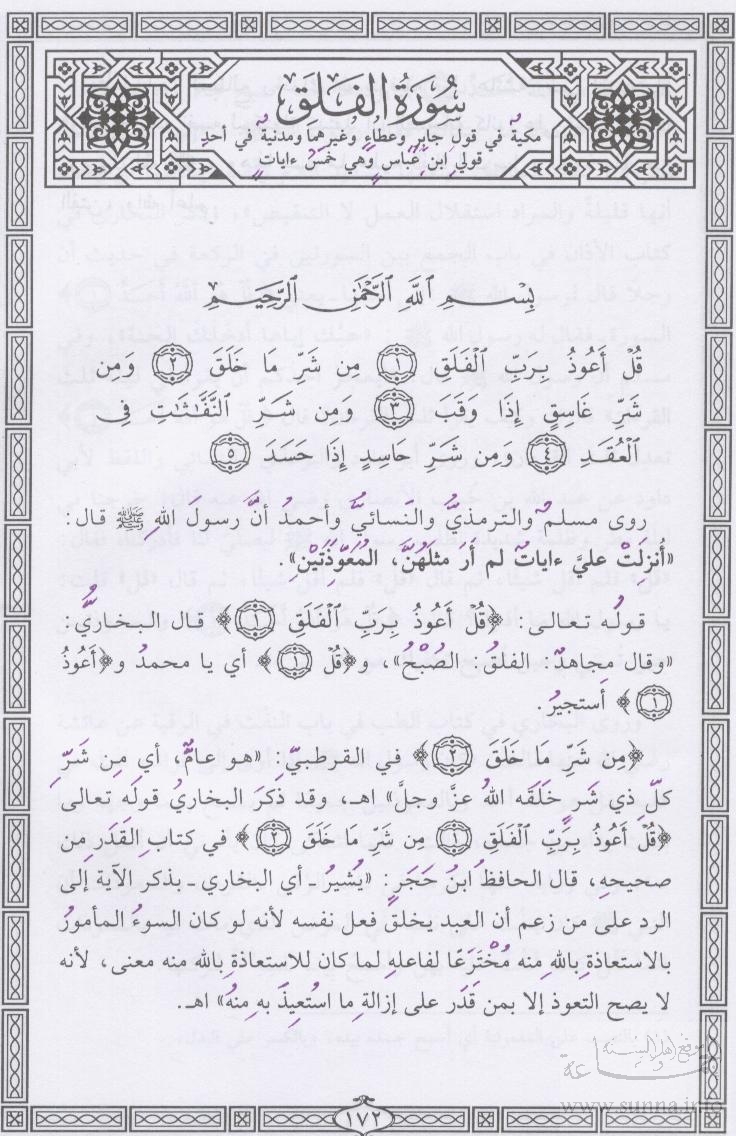 سُورَةُ الفَلَق
مكيةٌ في قولِ جابرٍ وعطاءٍ وغيرِهما ومدنيةٌ في أحدِ
قولي ابنِ عباسٍ وهي خمسُ ءاياتٍ
بِسْمِ اللَّهِ الرَّحْمَٰنِ الرَّحِيمِ
قُلْ أَعُوذُ بِرَبِّ الْفَلَقِ ﴿١﴾ مِن شَرِّ مَا خَلَقَ ﴿٢﴾ وَمِن
شَرِّ غَاسِقٍ إِذَا وَقَبَ ﴿٣﴾ وَمِن شَرِّ النَّفَّاثَاتِ فِي
الْعُقَدِ ﴿٤﴾ وَمِن شَرِّ حَاسِدٍ إِذَا حَسَدَ ﴿٥﴾
روى مسلمٌ والترمذيُّ والنسائيُّ وأحمدُ أنَّ رسولَ اللهِ ﷺ قال:
«أُنزلتْ عليَّ ءاياتٌ لم أرَ مثلَهُنَّ، المُعَوِّذَتَيْنِ».
قولُه تعالى: ﴿قُلْ أَعُوذُ بِرَبِّ الْفَلَقِ ﴿١﴾﴾ قال البخاريُّ:
«وقال مجاهدٌ: الفلقُ: الصُبْحُ»، و﴿قُلْ ﴿١﴾﴾ أي يا محمدُ و﴿أَعُوذُ
﴿١﴾﴾ أستجيرُ.
﴿مِن شَرِّ مَا خَلَقَ ﴿٢﴾﴾ في القرطبيّ: «هو عامٌّ، أي مِن شَرِّ
كلِّ ذي شرٍ خَلَقَه اللهُ عزَّ وجلَّ» اهـ، وقد ذكرَ البخاريُ قولَه تعالى
﴿قُلْ أَعُوذُ بِرَبِّ الْفَلَقِ ﴿١﴾ مِن شَرِّ ما خَلَقَ ﴿٢﴾﴾ في كتابِ القَدَرِ مِن
صحيحِه، قال الحافظُ ابنُ حَجَرٍ: «يُشيرُ - أي البخاري - بذكر الآية إلى
الرد على من زعم أن العبد يخلق فعل نفسه لأنه لو كان السوءُ المأمورُ
بالاستعاذةِ باللهِ منه مُخْتَرَعًا لفاعلِه لما كان للاستعاذةِ بالله منه معنى، لأنه
لا يصح التعوذ إلا بمن قَدَر على إزالةِ ما استُعيذَ به مِنهُ» اهـ.
١٧٢
www.sunna.info